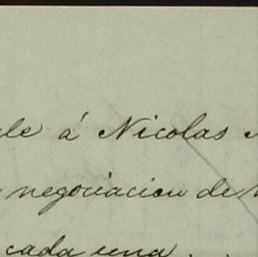 á Nicolas
negociacion de
cada una . .